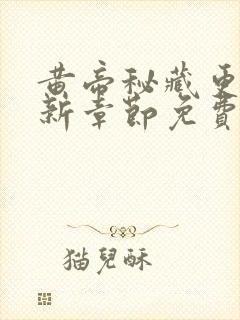 黄帝秘藏更
新章節免費
猫兒酥